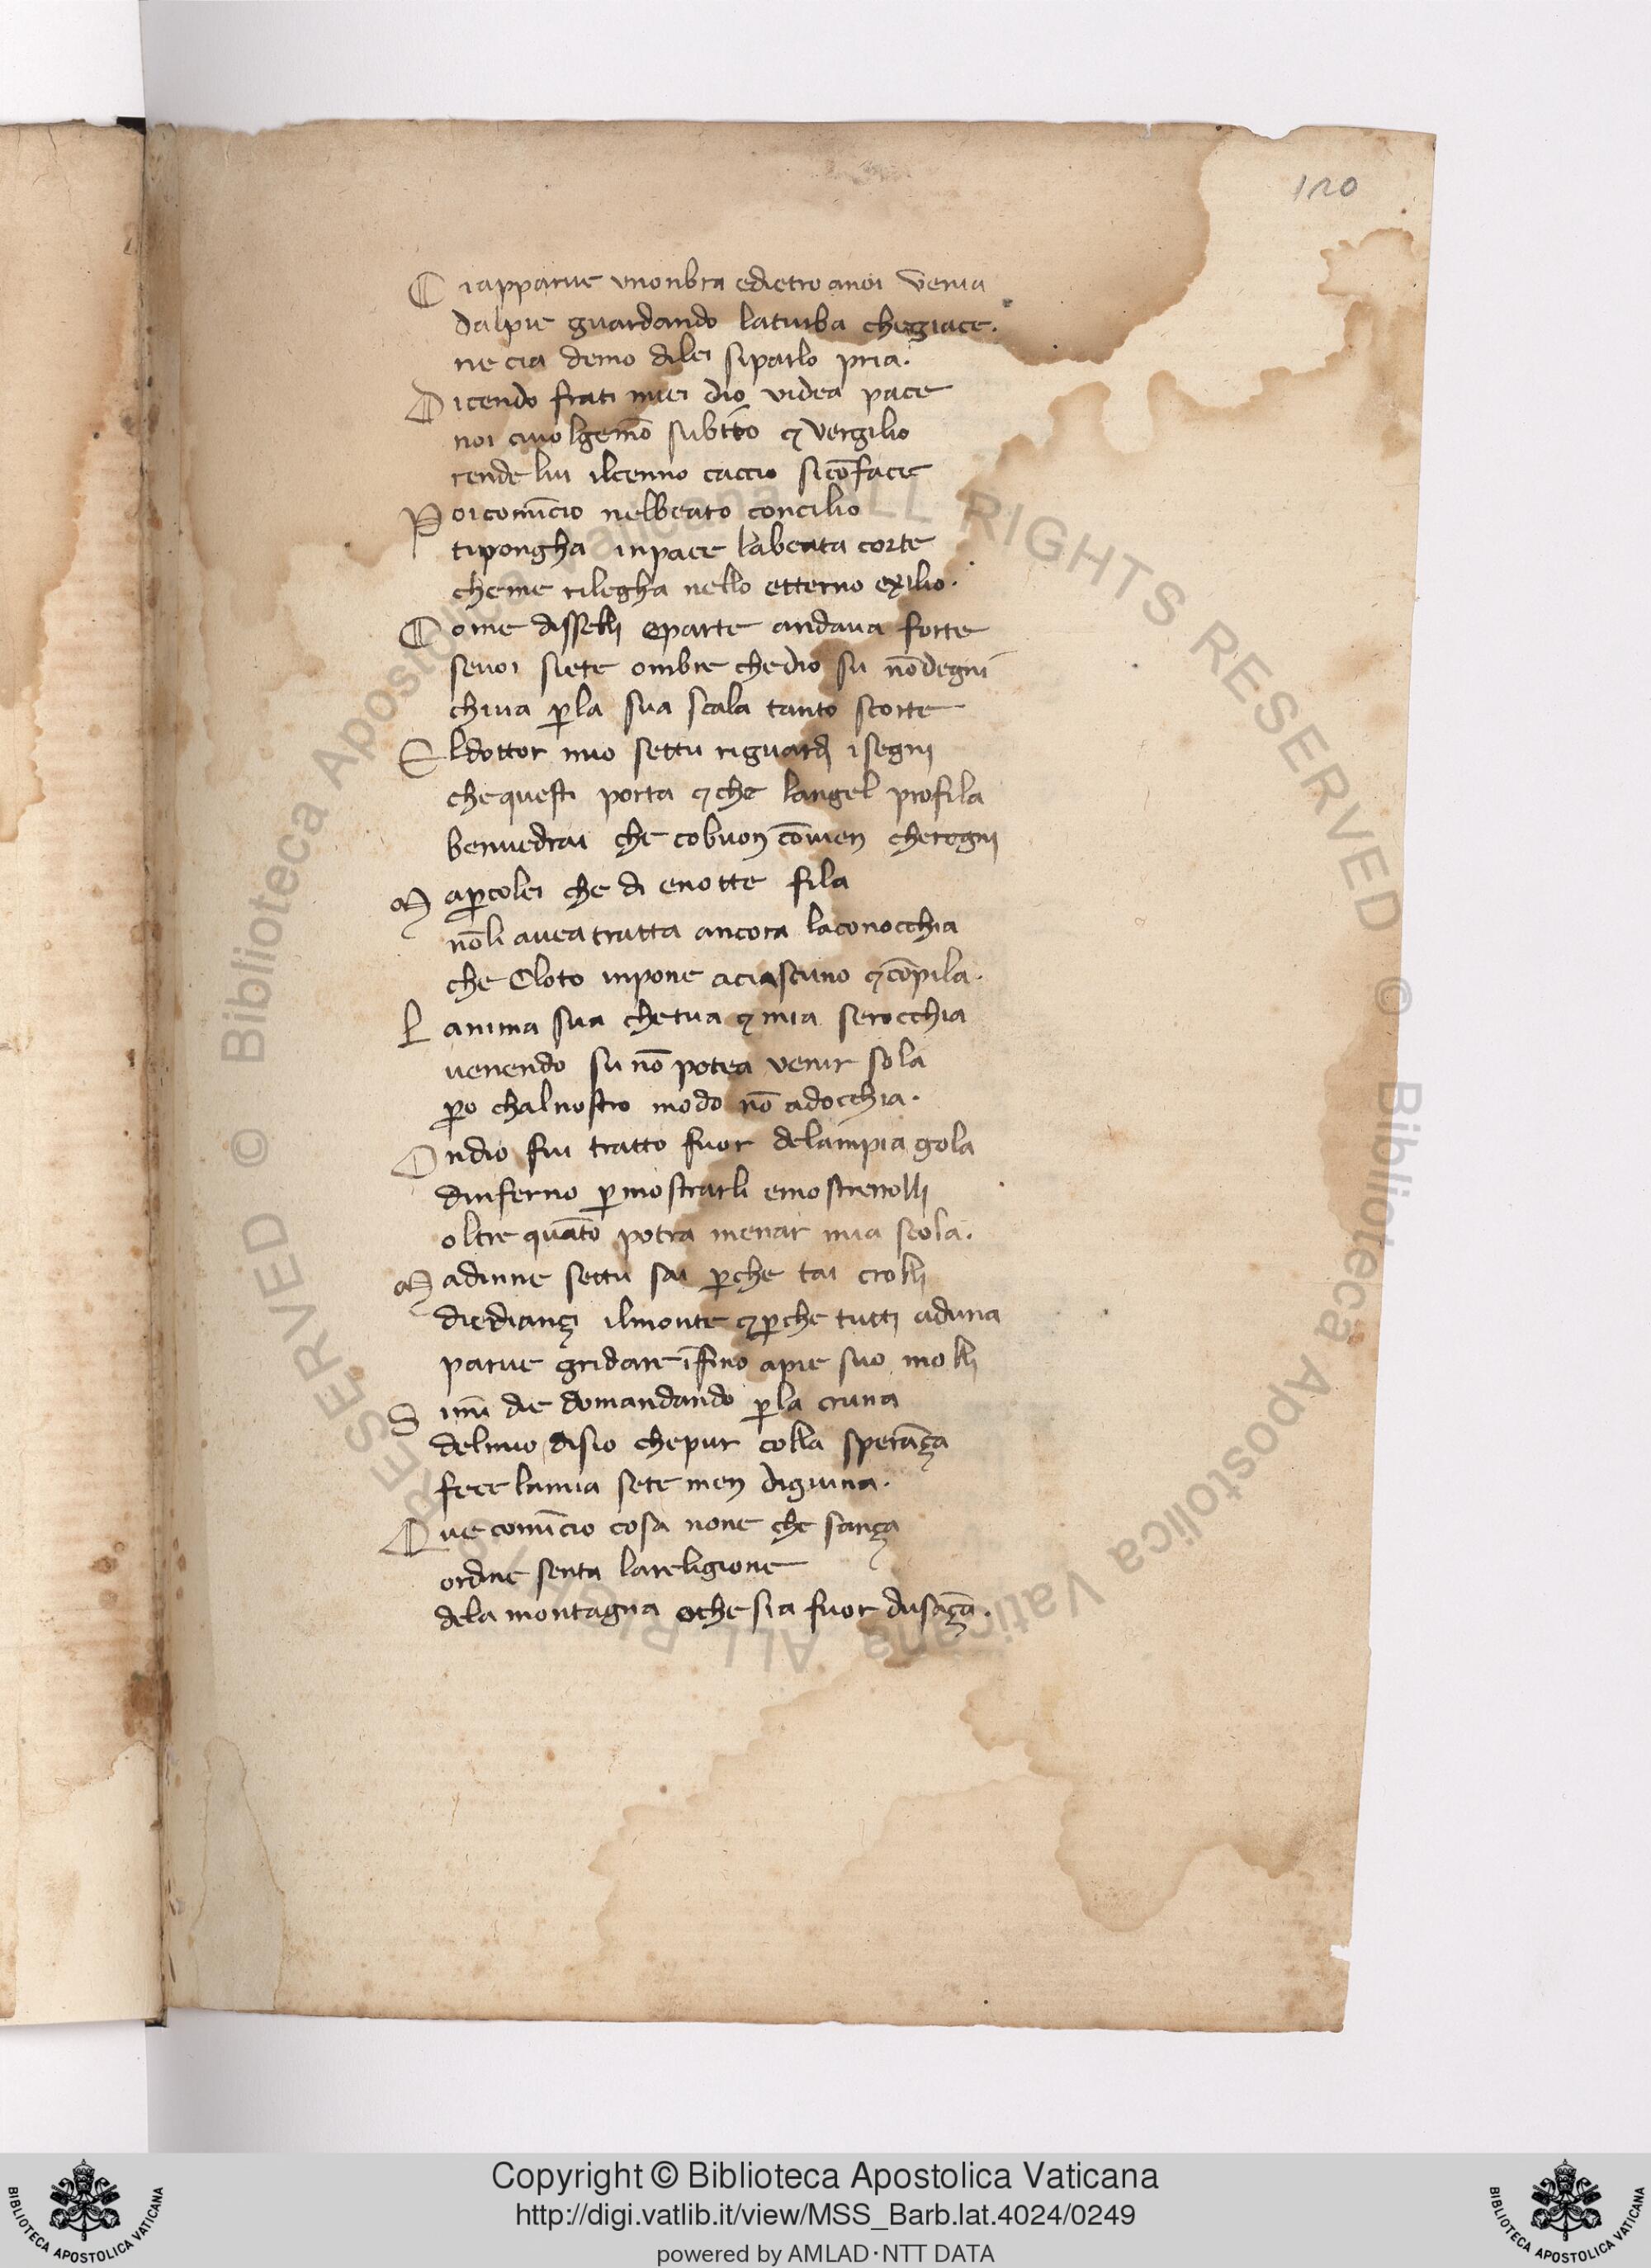 120
C iapparue unonbra edietro anoi venia
dalpie guardando laturba chegiace.
ne cia demo dilei siparlo pria.
D icendo frati miei dio videa pace
noi ciuolgemō subito ⁊ vergilio
rende lui ilcenno caccio sicōface
P oicomīcio nelbeato concilio
tipongha inpace labeata corte
cheme rilegha nello etterno exilio.
C ome disselli eparte andaua forte
seuoi siete ombre chedio su nōdegni
chiua ꝑla sua scala tanto scorte
E ldottor mio settu riguardi isegni
chequesti porta ⁊che langel profila
benuedrai che cobuon cōuien cheregni
M aꝑcolei che di enotte fila
nōli aueatratta ancora laconocchia
che Cloto inpone aciascuno ⁊cōpila.
L anima sua chetua ⁊ mia serocchia
uenendo su nō potea venir sola
ꝑo chalnostro modo nō adocchia.
O ndio fui tratto fuor delampia gola
dinferno ꝑmostrarli emosterrolli
oltre quāto potra menar mia scola.
M adinne settu sai ꝑche tai crolli
diedianzi ilmonte ⁊ꝑche tutti aduna
parue gridare īfino apie suo molli
S imi die domandando ꝑla cruna
delmio disio chepur colla sperāça
fece lamia sete men digiuna.
Q ue comīcio cosa none che sança
ordine senta lareligione
dela montagna oche sia fuor dusāça.
© Biblioteca Apostolica Vaticana ALL RIGHTS RESERVED © Biblioteca Apostolica Vaticana ALL RIGHTS RESERVED
Copyright © Biblioteca Apostolica Vaticana
http://digi.vatlib.it/view/MSS_Barb.lat.4024/0249
powered by AMLAD·NTT DATA
BIBLIOTECA APOSTOLICA VATICANA
BIBLIOTECA APOSTOLICA VATICANA